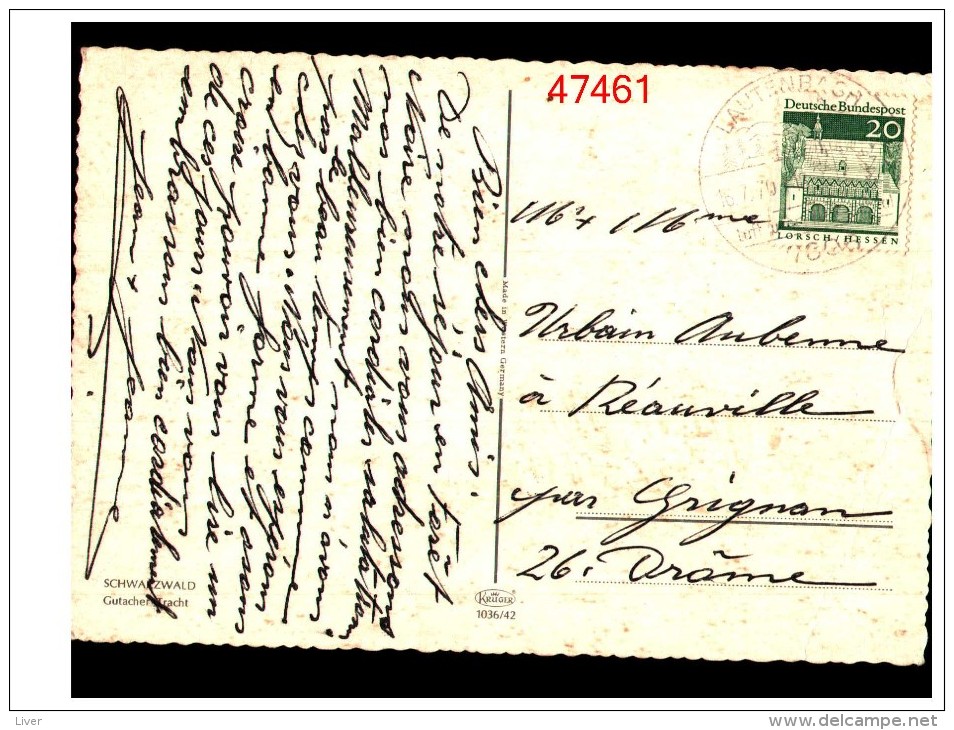 47461
LAUTENBACH
16.7.70
Deutsche Bundespost
20
LORSCH/HESSEN
Bien chers Amis.
De notre séjour en Forêt
Noire nous vous adressons
nos bien cordiales salutations
Malheureusement nous n'avons
pas le beau temps comme
chez vous. Nous vous espérons
en bonne forme et avons
espoir pouvoir vous lire un
de ces jours et nous vous
embrassons bien cordialement
Jean & Jeanne
Mr & Mme
Urbain Aubenne
à Réauville
par Grignan
26. Drôme
Made in Western Germany
SCHWARZWALD
Gutacher Tracht
KRÜGER
1036/42
Liver
www.delcampe.net